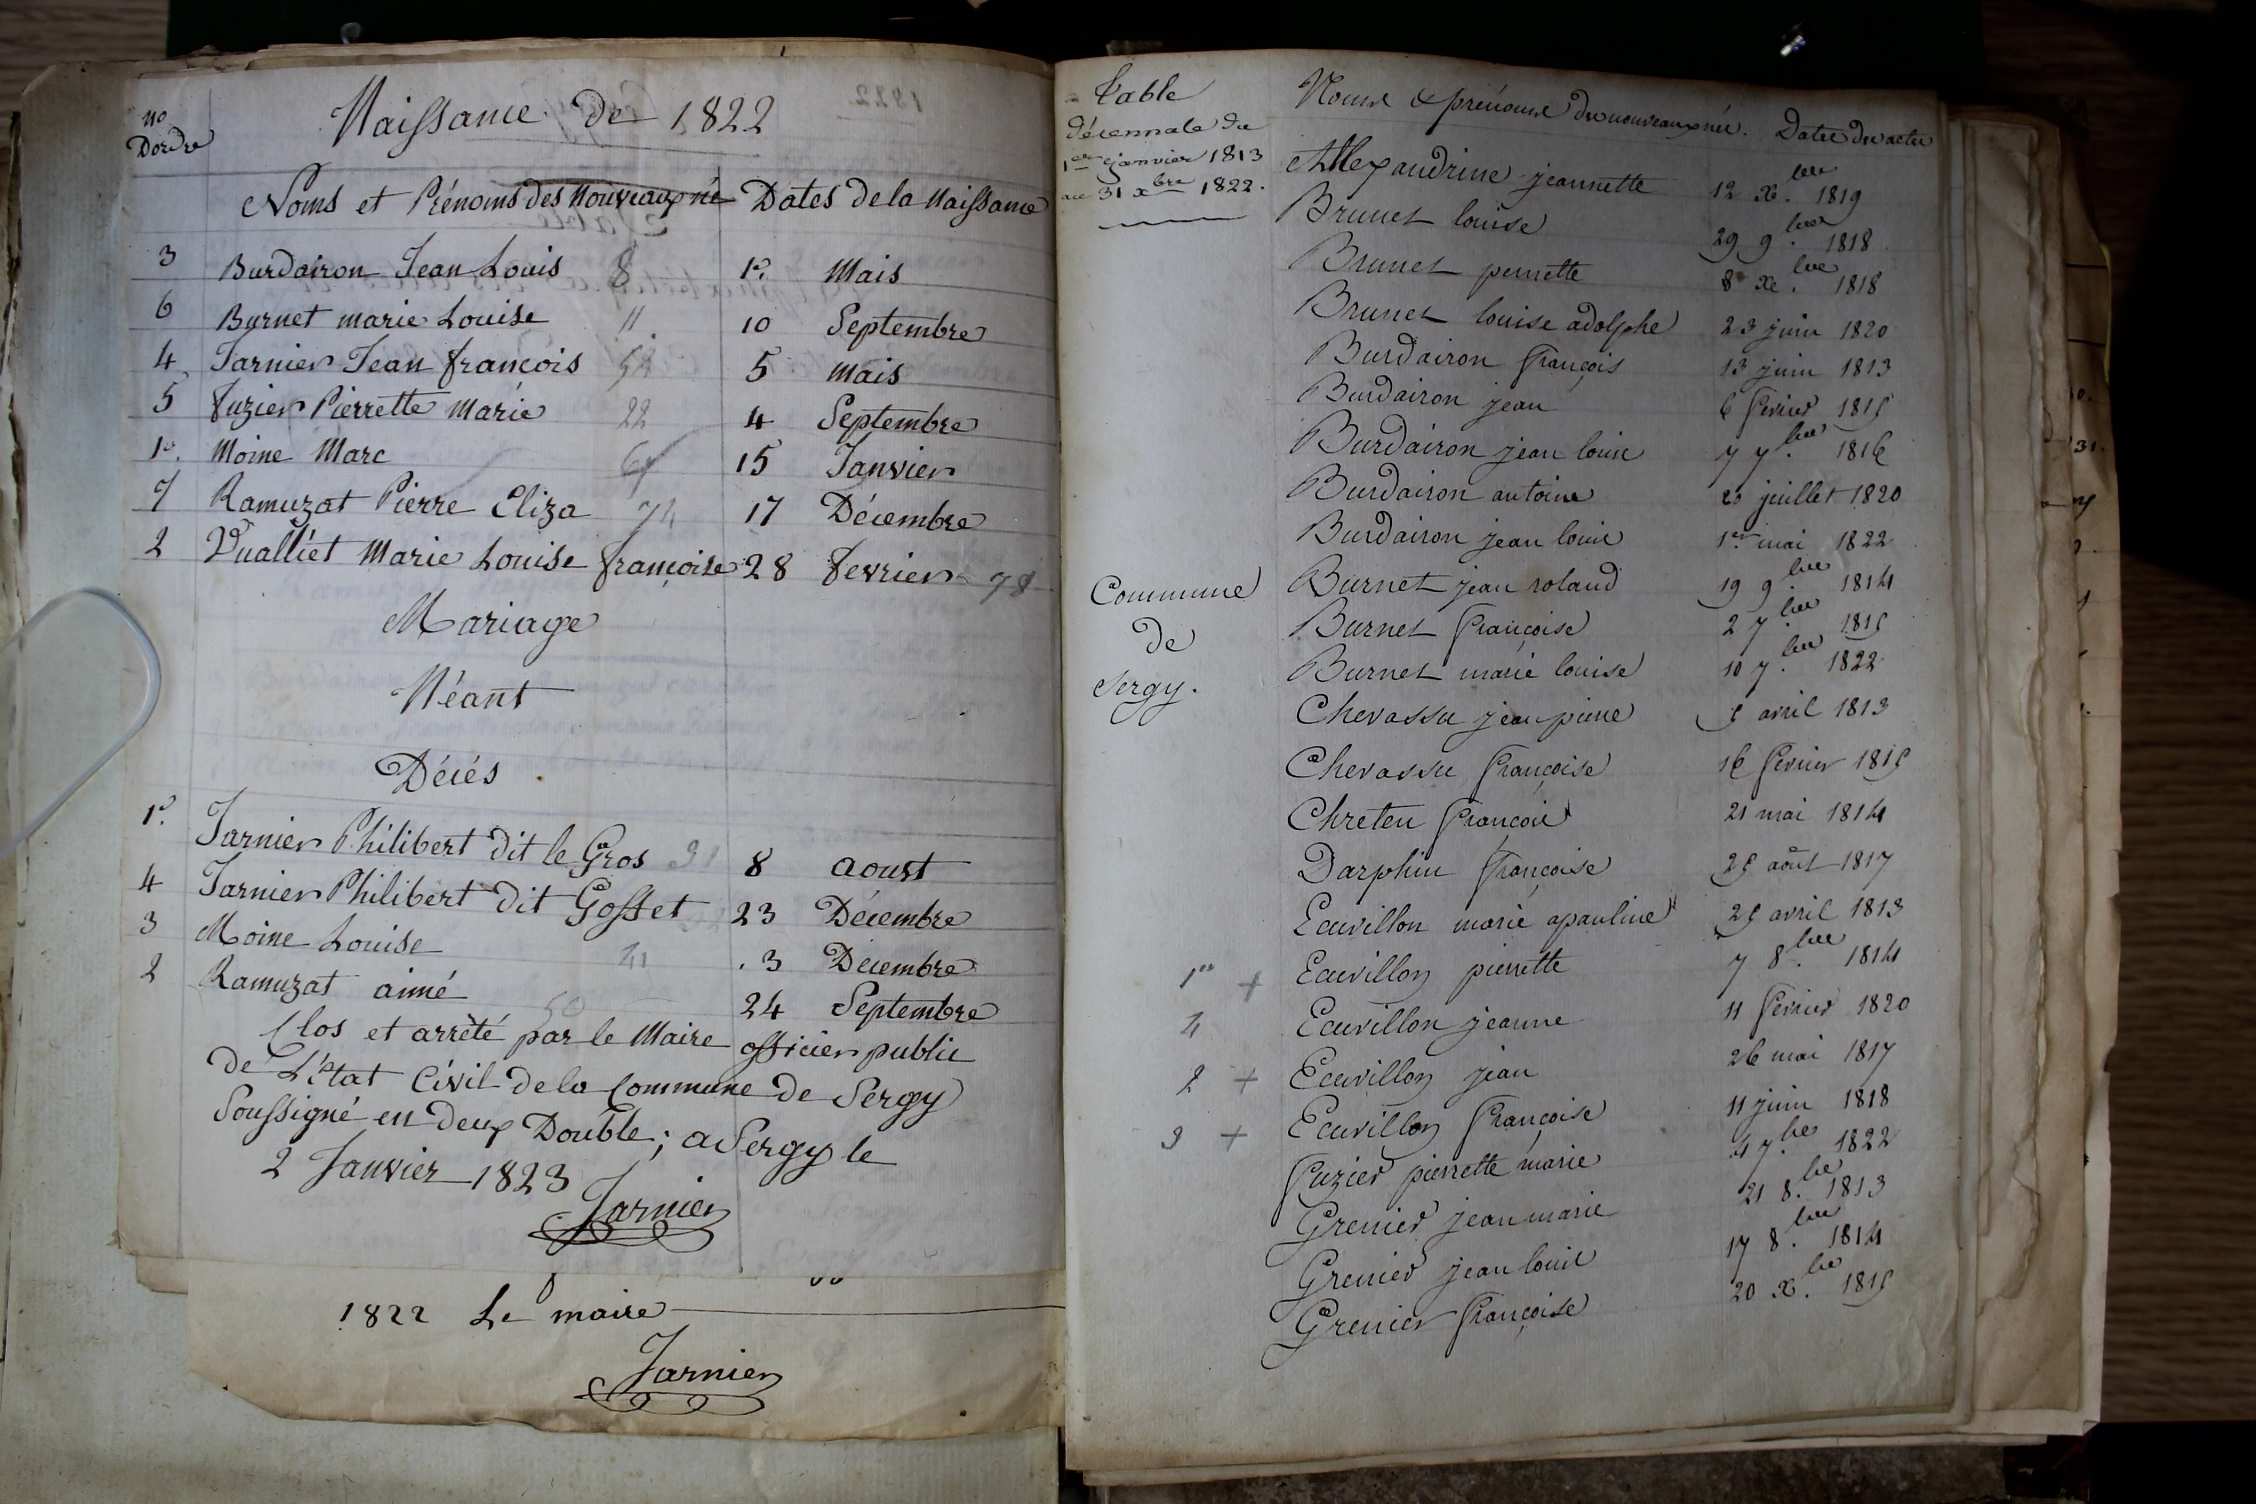 Naissance de 1822
no
Dordre
Noms et Prénoms des Nouveaux né Dates de la Naissance
3 Burdairon Jean Louis 8 1er. Mais
6 Burnet marie Louise 11 10 Septembre
4 Jarnier Jean francois 54 5 mais
5 fuzier Pierrette Marie 22 4 Septembre
1er. Moine Marc 15 Janvier
7 Ramuzat Pierre Eliza 74 17 Décembre
2 Vualliet Marie Louise françoise 28 fevrier 78
Mariage
Néant
Décés
1er. Jarnier Philibert dit le Gros 31 8 aoust
4 Jarnier Philibert dit Gosset 23 Décembre
3 Moine Louise 3 Décembre
2 Ramuzat aimé 50 24 Septembre
Clos et arrèté par le Maire officier public
de L'état Civil de la Commune de Sergy
Soussigné en deux Double; a Sergy le
2 Janvier 1823
Jarnier
1822 Le maire
Jarnier
Table
décennale du
1er janvier 1813
au 31 xbre 1822.
Commune
de
Sergy.
Noms & prénoms des nouveaux nés. Dates des actes
Allexandrine jeannette 12 x.bre 1819
Brunet louise 29 9.bre 1818
Brunet perrette 8 x.bre 1818
Brunet louise adolphe 23 juin 1820
Burdairon françois 13 juin 1813
Burdairon jean 6 fevrier 1815
Burdairon jean louis 7 7.bre 1816
Burdairon antoine 20 juillet 1820
Burdairon jean louis 1er mai 1822
Burnet jean roland 19 9.bre 1814
Burnet françoise 2 7.bre 1815
Burnet marie louise 10 7.bre 1822
Chevassu jean pierre 5 avril 1813
Chevassu françoise 16 fevrier 1815
Chreten françois 21 mai 1814
Darphin françoise 25 août 1817
Ecuvillon marie apauline 25 avril 1813
1er + Ecuvillon pierrette 7 8.bre 1814
4 Ecuvillon jeanne 11 fevrier 1820
2 + Ecuvillon jean 26 mai 1817
3 + Ecuvillon françoise 11 juin 1818
fuzier pierrette marie 4 7.bre 1822
Grenier jean marie 21 8.bre 1813
Grenier jean louis 17 8.bre 1814
Grenier françoise 20 x.bre 1815